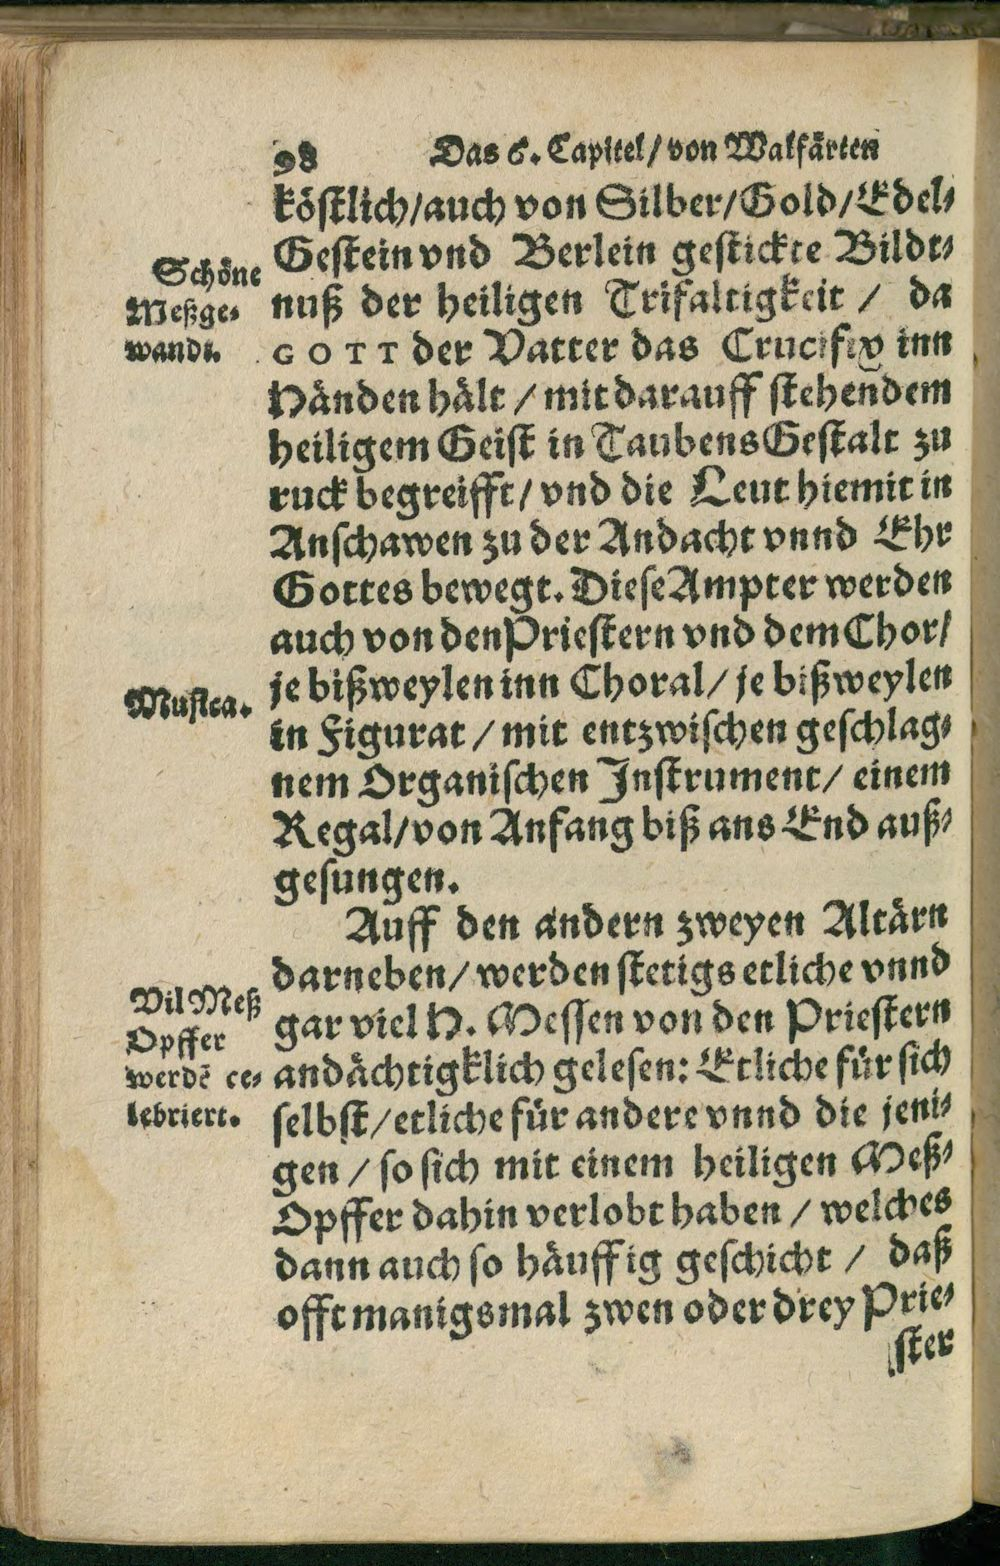 98 Das 6. Capitel/ von Walfärten
köstlich/auch von Silber/Gold/Edel⸗
Gestein vnd Berlein gestickte Bildt⸗
Schöne
Meßge⸗
wandt.
nuß der heiligen Trifaltigkeit / da
GOTT der Vatter das Crucifix inn
Händen hält / mit darauff stehendem
heiligem Geist in Taubens Gestalt zu
ruck begreifft/ vnd die Leut hiemit in
Anschawen zu der Andacht vnnd Ehr
Gottes bewegt. Diese Ampter werden
auch von den Priestern vnd dem Chor/
Musica.
je bißweylen inn Choral/ je bißweylen
in Figurat / mit entzwischen geschlag⸗
nem Organischen Instrument/ einem
Regal/von Anfang biß ans End auß⸗
gesungen.
Auff den andern zweyen Altärn
darneben/ werden stetigs etliche vnnd
Vil Meß
Opffer
werdē ce⸗
lebriert.
gar viel H. Messen von den Priestern
andächtigklich gelesen: Etliche für sich
selbst/ etliche für andere vnnd die jeni⸗
gen / so sich mit einem heiligen Meß⸗
Opffer dahin verlobt haben / welches
dann auch so häuffig geschicht / daß
offt manigsmal zwen oder drey Prie⸗
ster